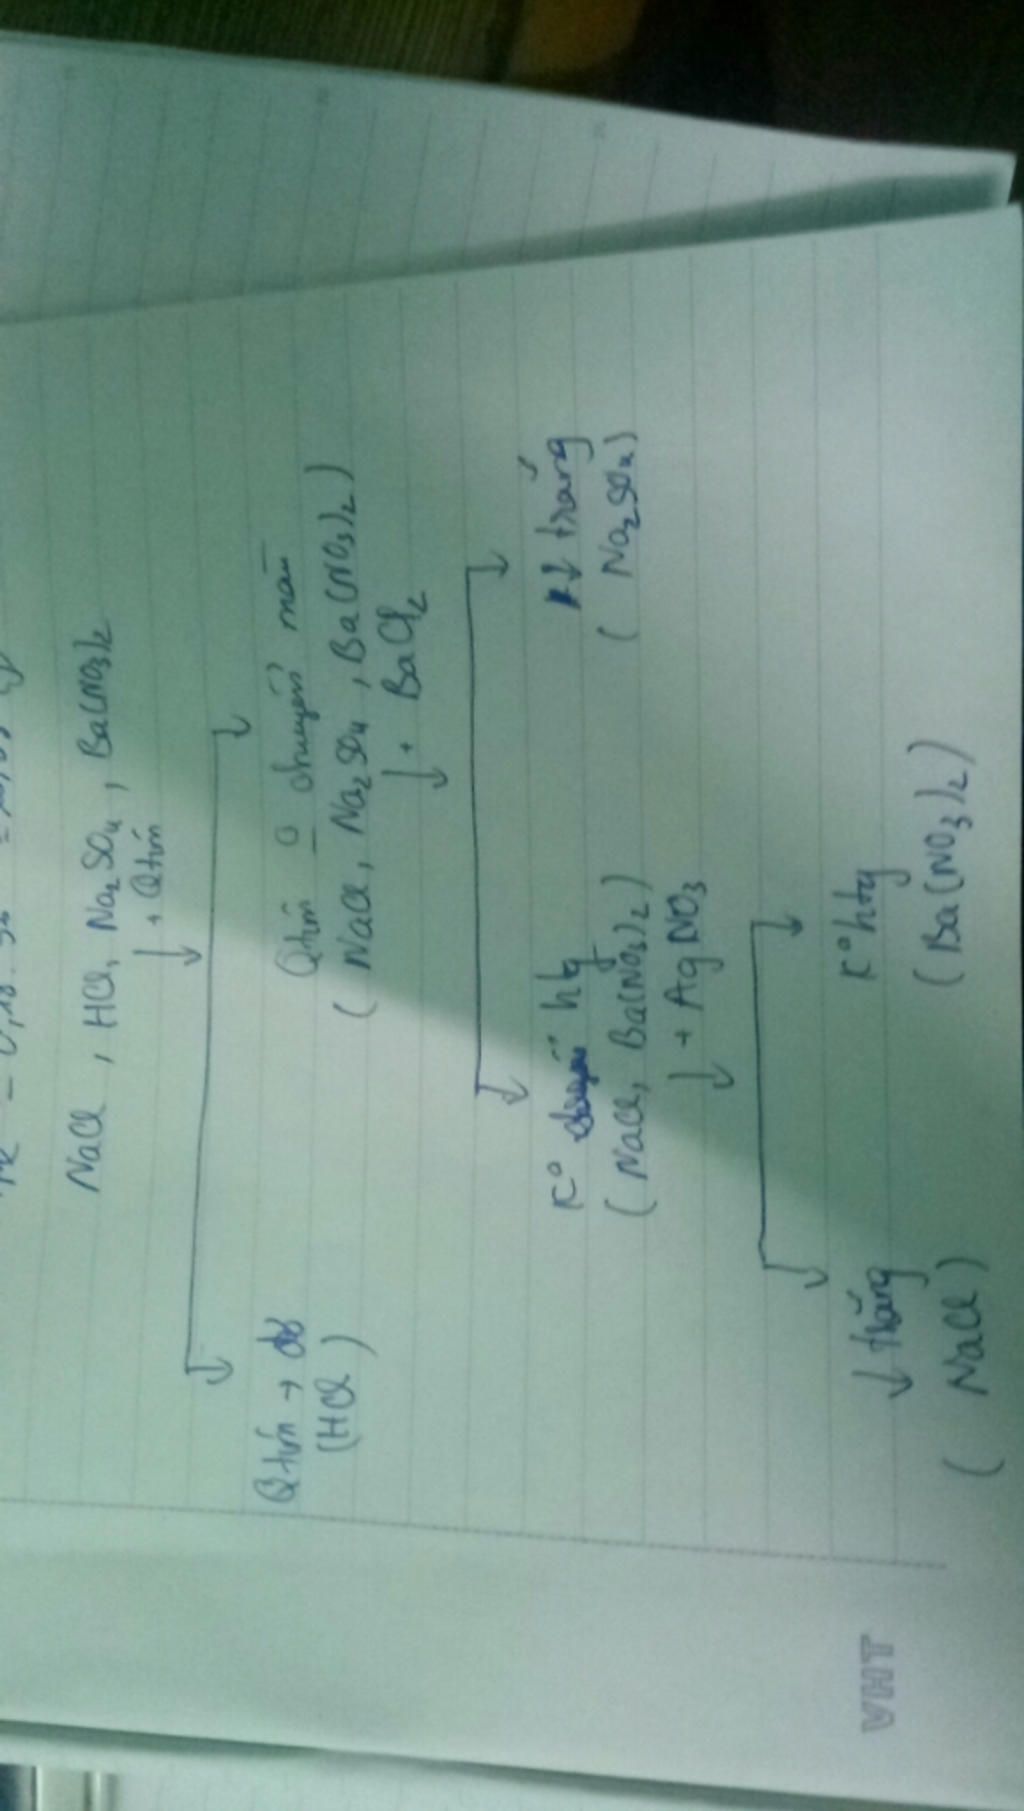 NaCl, HCl, Na2SO4, Ba(NO3)2
↓ + Qtím
Qtím → đỏ
(HCl)
Qtím o chuyển màu
(NaCl, Na2SO4, Ba(NO3)2)
↓ + BaCl2
K° htg
(NaCl, Ba(NO3)2)
↓ trắng
(Na2SO4)
↓ + AgNO3
↓ trắng
(NaCl)
K° htg
(Ba(NO3)2)
VHT